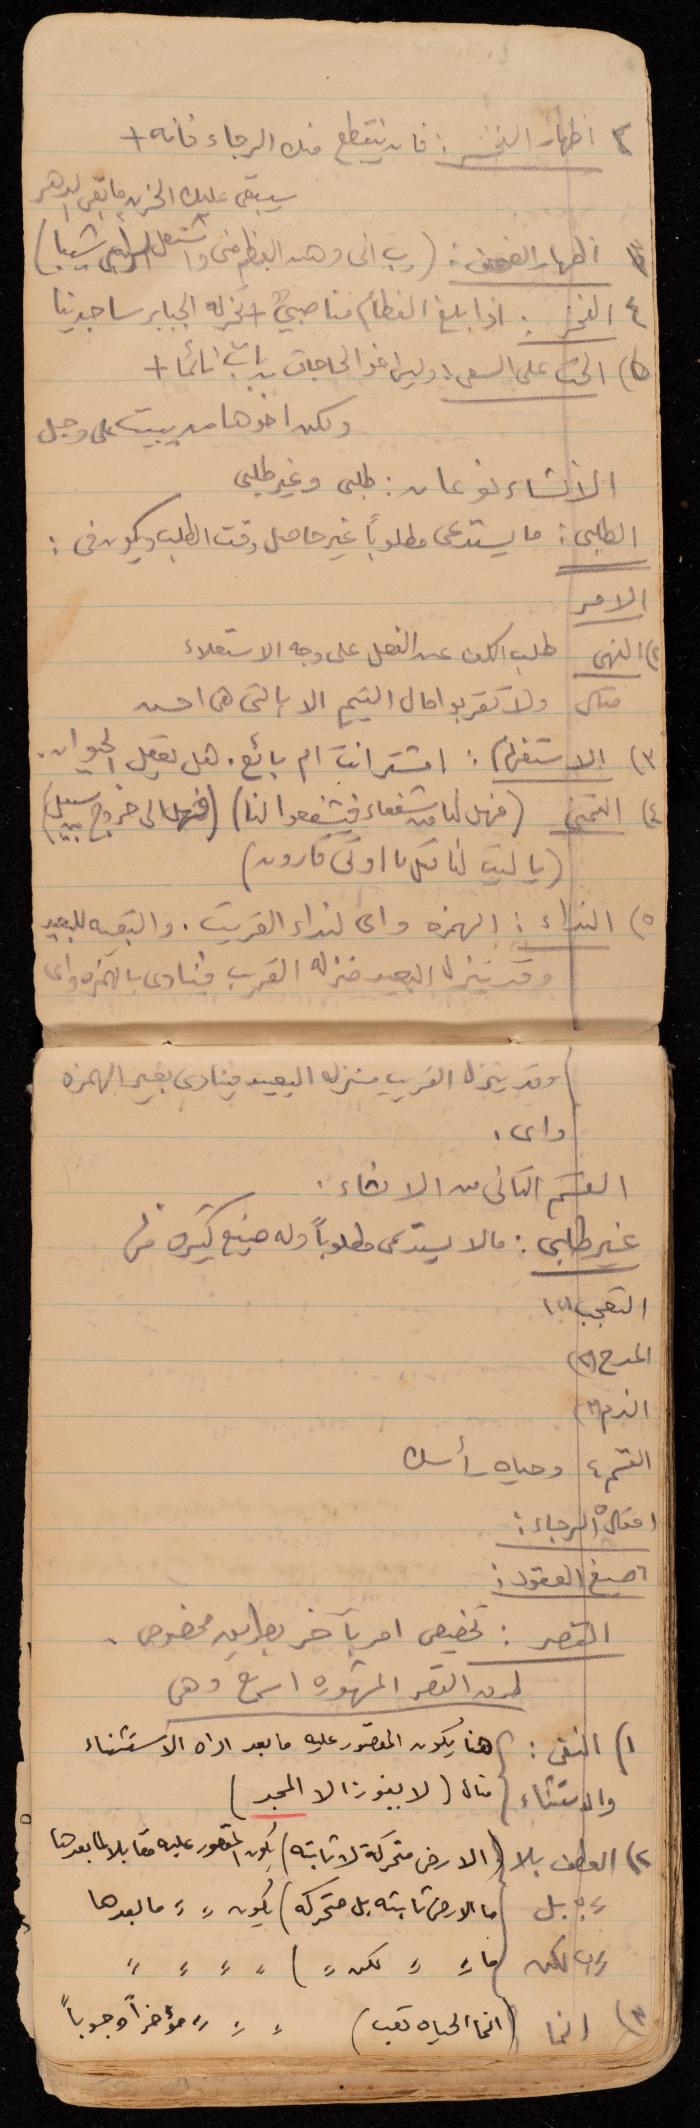 ٢ اظهار التحسر : فان ينقطع منك الرجاء فانه +
سيبقى عليك الحزن ما بقى الدهر
٣ اظهار الضعف : ( رب انى وهن العظم منى واشتعل الرأس شيبا )
٤ الفخر : اذا بلغ الفطام لنا صبي + تخر له الجبابر ساجدينا
٥) الحث على السعى : وليس اخو الحاجات من بات نائما +
ولكن اخوها من يبيت على وجل
الانشاء نوعان : طلبى وغير طلبى
الطلبى : ما يستدعى مطلوباً غير حاصل وقت الطلب ويكون فى :
الامر
٢) النهى طلب الكف عن الفعل على وجه الاستعلاء
مثال ولا تقربوا مال اليتيم الا بالتى هى احسن
٣) الاستفهام : امشتر انت ام بائع . هل يعقل الحيوان .
٤) التمنى ( فهل لنا من شفعاء فيشفعوا لنا ) ( فهل الى خروج من سبيل )
( يا ليت لنا مثل ما اوتى قارون )
٥) النداء : الهمزه واى لنداء القريب . والبقيه للبعيد
وقد ينزل البعيد منزله القريب فينادى بالهمزه واى
وقد ينزل القريب منزله البعيد فينادى بغير الهمزه
واى .
القسم الثانى من الانشاء .
غير طلبى : مالا يستدعى مطلوباً وله صيغ كثيره منها
التعجب (١
المدح (٢)
الذم (٣)
القسم ٤ وحياه رأسك
افعال ٥ الرجاء :
٦ صيغ العقود :
القصر : تخصيص امر بآخر بطريق مخصوص .
طرق القصر المشهوره اربع وهى
١) النفى : هنا يكون المقصور عليه ما بعد اداه الاستثناء
والاستثناء مثال ( لا يفوز الا المجد )
٢) العطف بلا ( الارض متحركة لا ثابته ) يكون المقصور عليه مقابلا لما بعدها
〃 ببل ( ما الارض ثابته بل متحركه ) يكون 〃 〃 ما بعدها
〃 لكن ( ما 〃 〃 لكن 〃 ) 〃 〃 〃 〃
٣) انما ( انما الحياه تعب ) 〃 〃 〃 〃 مؤخراً وجوباً